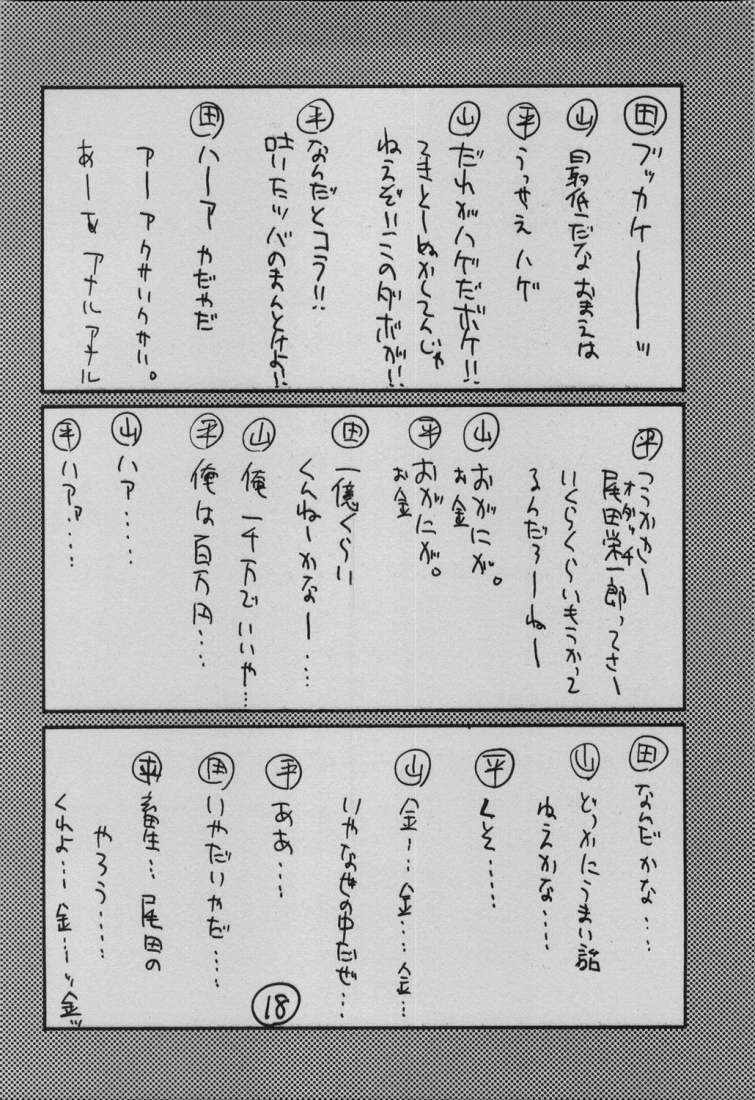 田 ブッカケーーーッ
山 最低だなおまえは
平 うっせえハゲ
山 だれがハゲだボケ!!
てきとーぬかしてんじゃ
ねえぞ!!このダボが!!
平 なんだとコラ!!
吐いたツバのまんとけよ!!
田 ハーア やだやだ
アー アクサいクサい。
あーあ アナル アナル
平 つうかさー
尾田栄一郎ってさー
オダッチ
いくらくらいもうかって
るんだろーねー
山 おがにが。
お金
平 おがにが。
お金
田 一億くらい
くんねーかなー‥‥
山 俺 一千万でいいや…
平 俺は百万円‥‥
山 ハァ……
平 ハァァ‥‥
田 なんだかな‥‥
山 どっかにうまい話
ねえかな‥‥
平 くそ……
山 金…金…金…
いやなせの中だぜ…
平 ああ…
田 いやだいやだ‥‥
畜生… 尾田の
やろう‥‥
くれよ… 金…ッ金ッ
18